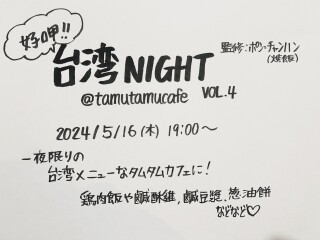 好呷!!
台湾NIGHT
監修:ポウ・チャンハン
@tamutamucafe VOL.4
2024/5/16(木) 19:00〜
一夜限りの
台湾メニューなタムタムカフェに!
鶏肉飯や鹹酥雞,鹹豆漿,葱油餅
などなど♡